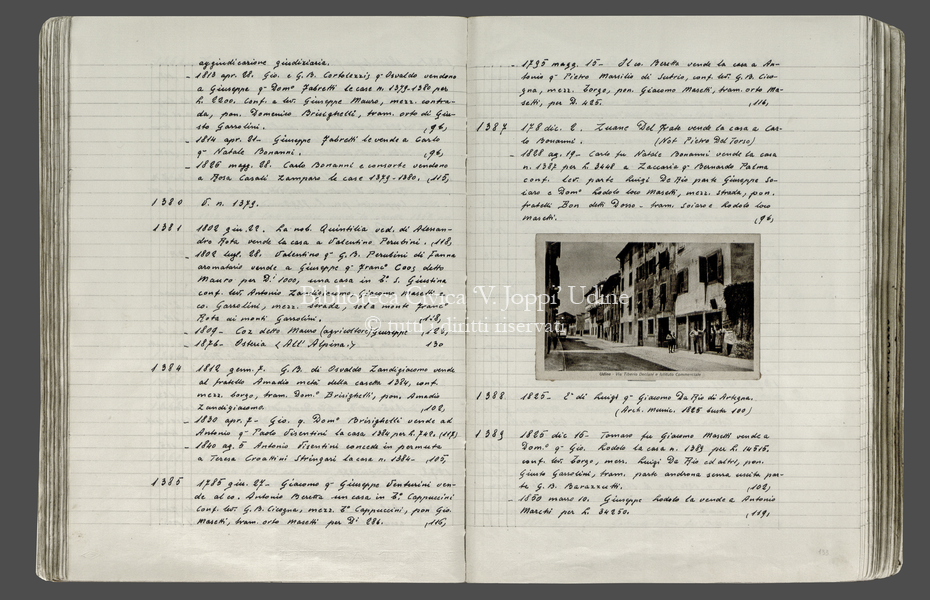 aggiudicazione giudiziaria.
- 1813 apr. 28. Gio. e G.B. Cortolezzis q.m Osvaldo vendono
a Giuseppe q.m Dom.o Fabretti le case n. 1379-1380 per
L. 2200. Conf. a lev. Giuseppe Mauro, mezz. contra-
da, pon. Domenico Brisighelli, tram. orto di Giu-
sto Garzolini. (96)
- 1814 apr. 21 - Giuseppe Fabretti le vende a Carlo
q.m Natale Bonanni. (96)
- 1826 magg. 28. Carlo Bonanni e consorte vendono
a Rosa Casali Zamparo le case 1379-1380. (115)
1380 V. n. 1379.
1381 1802 giu. 22. La nob. Quintilia ved. di Alessan-
dro Rota vende la casa a Valentino Perubini. (118)
- 1802 lugl. 28. Valentino q.m G.B. Perubini di Fanna
aromatario vende a Giuseppe q.m Franc.o Coos detto
Mauro per D.i 1000, una casa in b.o S. Giustina
conf. lev. Antonio Zandigiacomo, Giacomo Maretti e
co. Garzolini, mezz. strada, sol a monti Franc.o
Rota ai monti Garzolini. (118)
- 1809 - Coz detto Mauro (agricoltore) Giuseppe (126)
- 1876 - Osteria "All'Alpina." 130
1384 1812 genn. 7. G.B. di Osvaldo Zandigiacomo vende
al fratello Amadio metà della casetta 1384, conf.
mezz. borgo, tram. Dom.o Brisighelli, pon. Amadio
Zandigiacomo. (102)
- 1830 apr. 7 - Gio. q. Dom.o Brisighelli vende ad
Antonio q.m Paolo Visentini la casa 1384 per L. 742. (117)
- 1840 ag. 5 Antonio Visentini concede in permuta
a Teresa Croattini Stringari la casa n. 1384 - (105)
1385 1785 giu. 27 - Giacomo q.m Giuseppe Venturini ven-
de al co. Antonio Beretta una casa in b.o Cappuccini
conf. lev. G.B. Cicogna, mezz. b.o Cappuccini, pon Gio.
Maretti, tram. orto Maretti per D.i 286. (116)
- 1795 magg. 15 - Il co. Beretta vende la casa a An-
tonio q.m Pietro Marsilio di Sutrio, conf. lev. G.B. Cico-
gna, mezz. borgo, pon. Giacomo Maretti, tram. orto Ma-
retti, per D. 425. (116)
1387 178 dic. 2. Zuane Del Frate vende la casa a Car-
lo Bonanni. (Not Pietro Dal Torso)
- 1828 ag. 19 - Carlo fu Natale Bonanni vende la casa
n. 1387 per L. 3448 a Zaccaria q.m Bernardo Palma
conf. lev. parte Luigi Da Rio parte Giuseppe So-
iaro e Dom.o Lodolo loco Maretti, mezz. strada, pon.
fratelli Bon detti Dorso - tram. Soiaro e Lodolo loco
Maretti. (96)
Udine - Via Tiberio Deciani e Istituto Commerciale
1388 1825 - E' di Luigi q.m Giacomo Da Rio di Artegna.
(Arch. Munic. 1825 busta 100)
1389 1825 dic 15 - Tomaso fu Giacomo Maretti vende a
Dom.o q.m Gio. Lodolo la casa n. 1389 per L. 14515.
conf. lev. borgo, mezz. Luigi Da Rio ed altri, pon.
Giusto Garzolini, tram. parte androna senza uscita par-
te G.B. Barazzutti. (102)
- 1850 marzo 10. Giuseppe Lodolo la vende a Antonio
Maretti per L. 34250. (119)
Biblioteca Civica 'V. Joppi' Udine
© tutti i diritti riservati